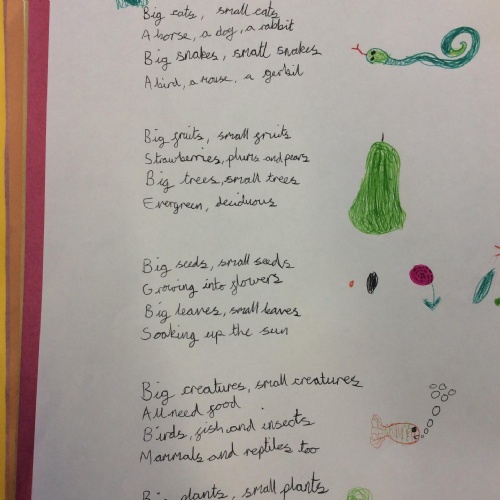 Big cats, small cats
A horse, a dog, a rabbit
Big snakes, small snakes
A bird, a mouse, a gerbil
Big fruits, small fruits
Strawberries, plums and pears
Big trees, small trees
Evergreen, deciduous
Big seeds, small seeds
Growing into flowers
Big leaves, small leaves
Soaking up the sun
Big creatures, small creatures
All need food
Birds, fish and insects
Mammals and reptiles too
Big plants, small plants